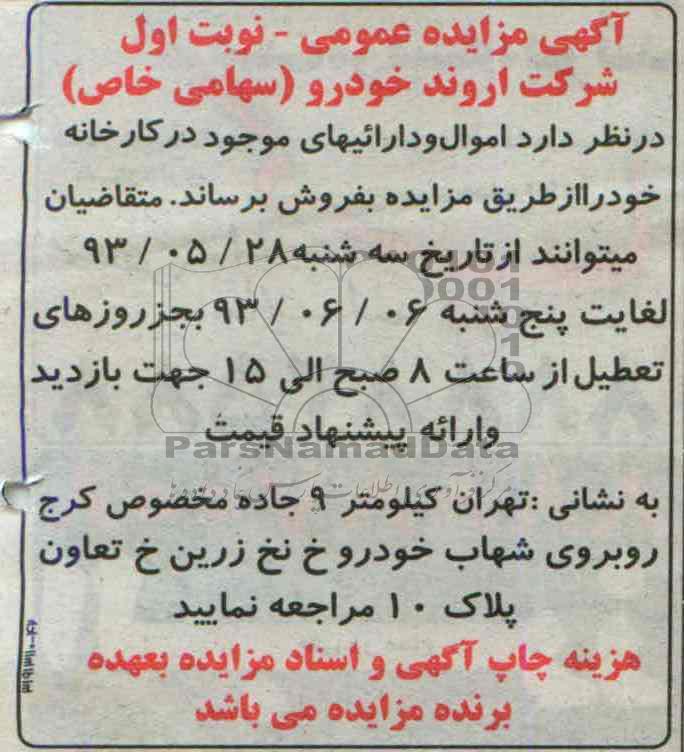 آگهی مزایده عمومی - نوبت اول
شرکت اروند خودرو (سهامی خاص)
درنظر دارد اموال‌ودارائیهای موجود در کارخانه
خودرااز طریق مزایده بفروش برساند. متقاضیان
میتوانند از تاریخ سه شنبه ۲۸ / ۰۵ / ۹۳
لغایت پنج شنبه ۰۶ / ۰۶ / ۹۳ بجز روزهای
تعطیل از ساعت ۸ صبح الی ۱۵ جهت بازدید
وارائه پیشنهاد قیمت
ParsNamadData
به نشانی :تهران کیلومتر ۹ جاده مخصوص کرج
روبروی شهاب خودرو خ نخ زرین خ تعاون
پلاک ۱۰ مراجعه نمایید
هزینه چاپ آگهی و اسناد مزایده بعهده
برنده مزایده می باشد